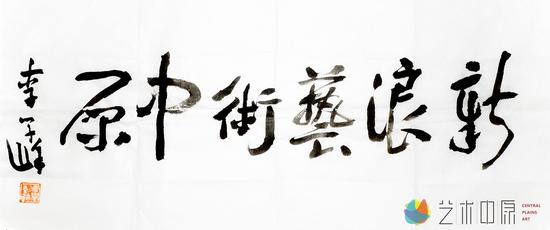 新浪藝術中原
李學峰
艺术中原
CENTRAL
PLAINS
ART